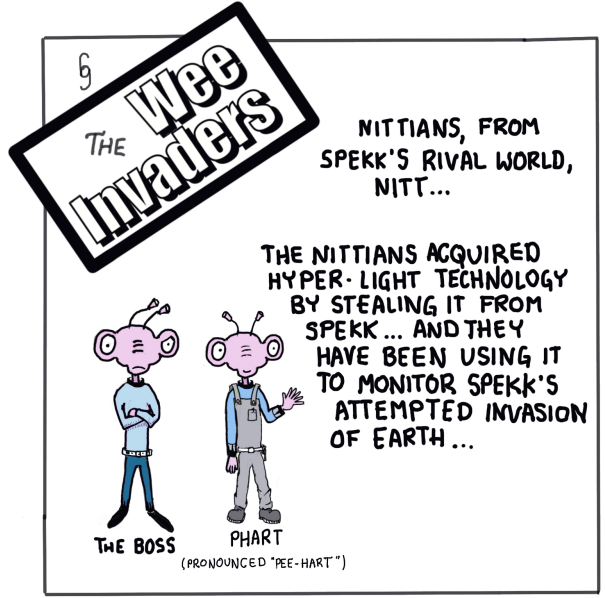 THE Wee
Invaders
NITTIANS, FROM
SPEKK'S RIVAL WORLD,
NITT...
THE NITTIANS ACQUIRED
HYPER-LIGHT TECHNOLOGY
BY STEALING IT FROM
SPEKK... AND THEY
HAVE BEEN USING IT
TO MONITOR SPEKK'S
ATTEMPTED INVASION
OF EARTH...
THE BOSS
PHART
(PRONOUNCED "PEE-HART")